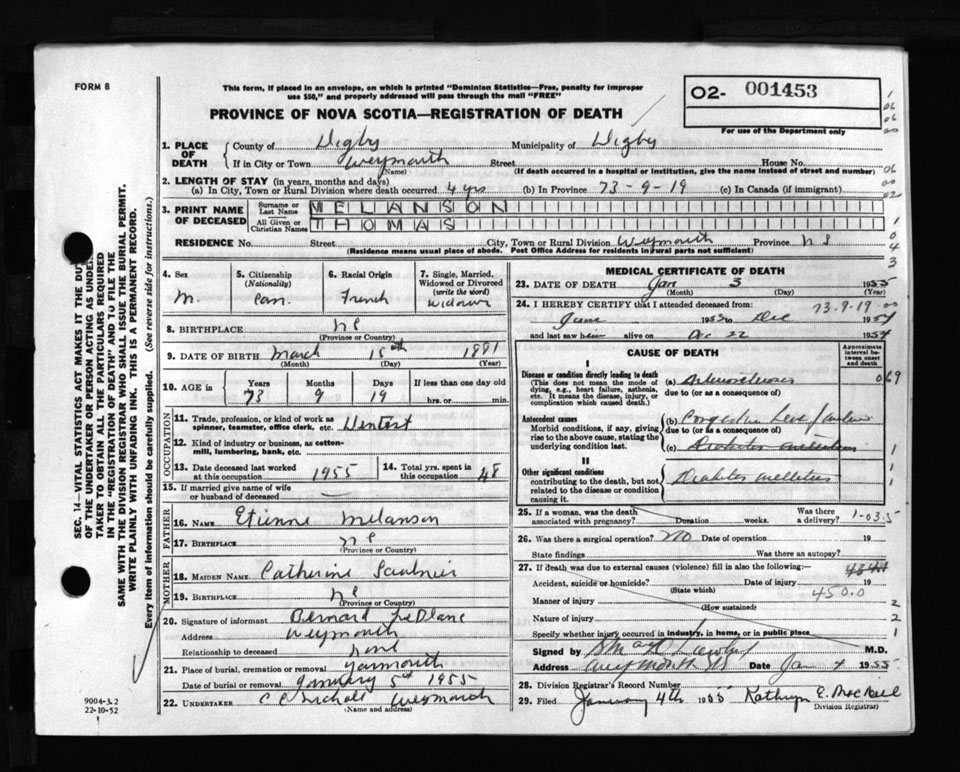 FORM 8
This form, if placed in an envelope, on which is printed "Dominion Statistics—Free, penalty for improper
use $50," and properly addressed will pass through the mail "FREE"
PROVINCE OF NOVA SCOTIA—REGISTRATION OF DEATH
O2- 001453
For use of the Department only
1. PLACE OF DEATH
County of Digby Municipality of Digby
If in City or Town Weymouth Street House No.
(Name) (If death occurred in a hospital or institution, give the name instead of street and number)
2. LENGTH OF STAY (in years, months and days)
(a) In City, Town or Rural Division where death occurred 4 yrs (b) In Province 73-9-19 (c) In Canada (if immigrant)
3. PRINT NAME OF DECEASED
Surname or Last Name MELANSON
All Given or Christian Names THOMAS
RESIDENCE No. Street City, Town or Rural Division Weymouth Province N S
(Residence means usual place of abode. Post Office Address for residents in rural parts not sufficient)
4. Sex M.
5. Citizenship (Nationality) Can.
6. Racial Origin French
7. Single, Married, Widowed or Divorced (write the word) widower
8. BIRTHPLACE
(Province or Country)
9. DATE OF BIRTH March 15th 1881
(Month) (Day) (Year)
10. AGE in Years Months Days If less than one day old
73 9 19 hrs. or min.
OCCUPATION
11. Trade, profession, or kind of work as spinner, teamster, office clerk, etc. Dentist
12. Kind of industry or business, as cotton-mill, lumbering, bank, etc.
13. Date deceased last worked at this occupation 1955
14. Total yrs. spent in this occupation 48
15. If married give name of wife or husband of deceased
FATHER
16. NAME Etienne Melanson
17. BIRTHPLACE
(Province or Country)
MOTHER
18. MAIDEN NAME Catherine Saulnier
19. BIRTHPLACE
(Province or Country)
20. Signature of informant Bernard LeBlanc
Address Weymouth
Relationship to deceased none
21. Place of burial, cremation or removal Yarmouth
Date of burial or removal January 5th 1955
22. UNDERTAKER Weymouth
(Name and address)
MEDICAL CERTIFICATE OF DEATH
23. DATE OF DEATH Jan 3 1955
(Month) (Day) (Year)
24. I HEREBY CERTIFY that I attended deceased from 73.9.19
June 1953 to Dec 1954
and last saw him alive on Dec 22 1954
CAUSE OF DEATH
Approximate interval between onset and death
I
Disease or condition directly leading to death
(This does not mean the mode of dying, e.g., heart failure, asthenia, etc. It means the disease, injury, or complication which caused death.)
(a) Arteriosclerosis
due to (or as a consequence of)
Antecedent causes
Morbid conditions, if any, giving rise to the above cause, stating the underlying condition last.
(b) Congestive
due to (or as a consequence of)
(c) Diabetes
II
Other significant conditions
contributing to the death, but not related to the disease or condition causing it.
Diabetes mellitus
25. If a woman, was the death associated with pregnancy? Duration weeks. Was there a delivery? 1-03.5
26. Was there a surgical operation? No Date of operation 19
State findings Was there an autopsy?
27. If death was due to external causes (violence) fill in also the following:—
Accident, suicide or homicide? Date of injury 19
(State which) 450.0
Manner of injury
(How sustained)
Nature of injury
Specify whether injury occurred in industry, in home, or in public place
Signed by M.D.
Address Weymouth NS Date Jan 4 1955
28. Division Registrar's Record Number
29. Filed January 4th 1955 Kathryn E. MacNeil
Division Registrar
SEC. 14—VITAL STATISTICS ACT MAKES IT THE DU
OF THE UNDERTAKER OR PERSON ACTING AS UNDER
TAKER TO OBTAIN ALL THE PARTICULARS REQUIRED
IN THE "REGISTRATION OF DEATH" AND TO FILE THE
SAME WITH THE DIVISION REGISTRAR WHO SHALL ISSUE THE BURIAL PERMIT.
WRITE PLAINLY WITH UNFADING INK. THIS IS A PERMANENT RECORD.
Every item of information should be carefully supplied. (See reverse side for instructions.)
9004-3.2
22-10-52